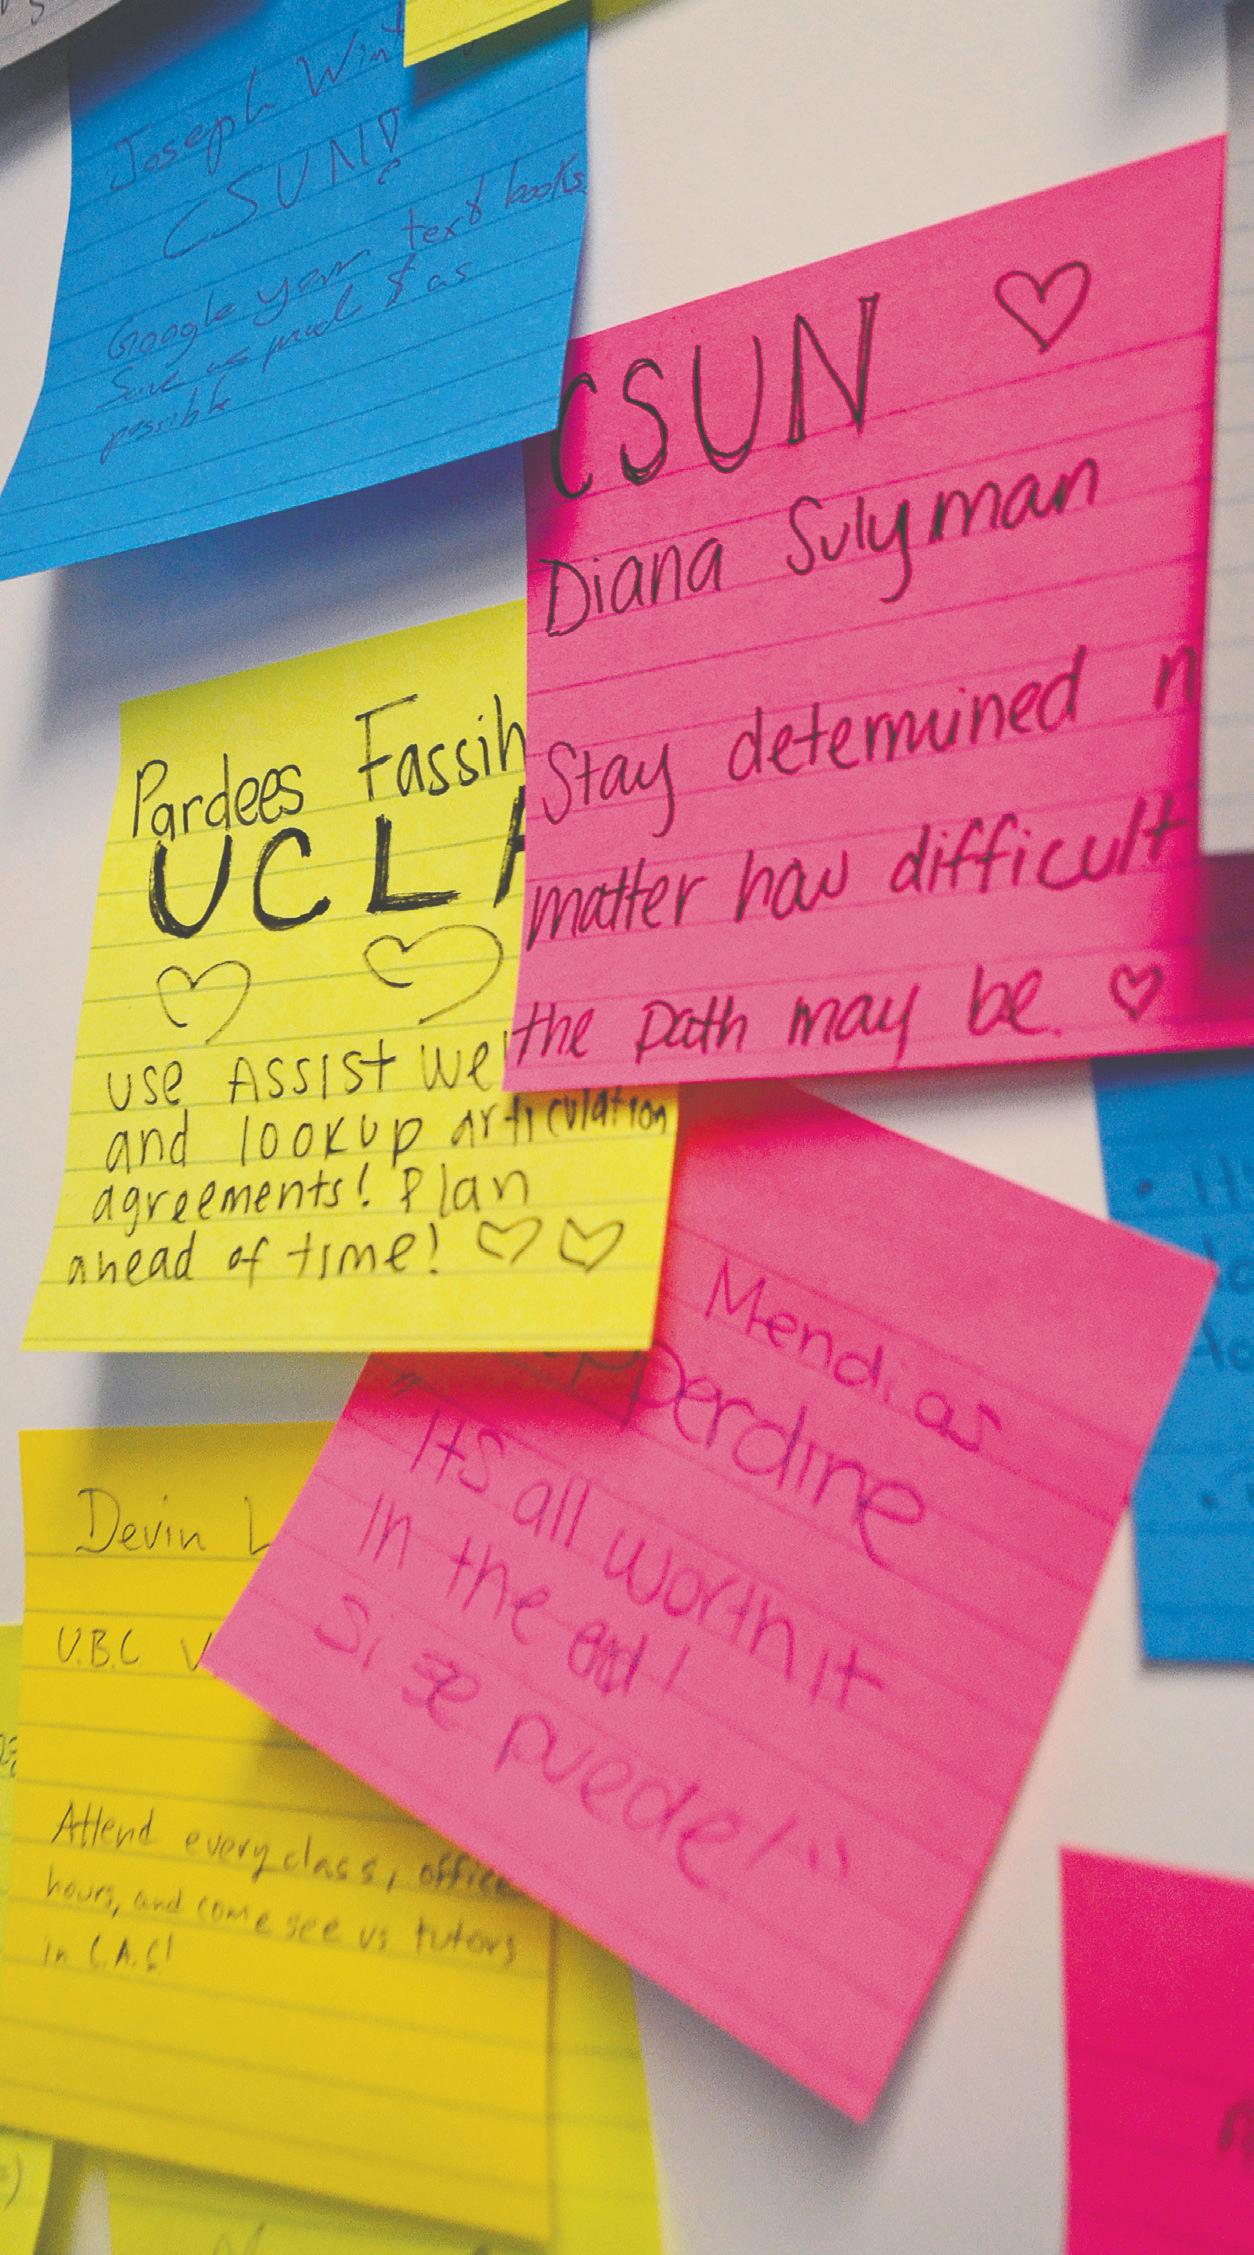 Joseph
CSUN!
Google your text books
Save as much $ as
possible
CSUN
Diana Sulyman
Stay determined n
matter how difficult
the path may be.
Pardees Fassih
UCLA
use ASSIST we
and lookup articulation
agreements! Plan
ahead of time!
Mendias
pperdine
"Its all worth it
In the end!
Si se puede!"
Devin L
U.B.C V
Attend every class, office
hours, and come see us tutors
in C.A.S!